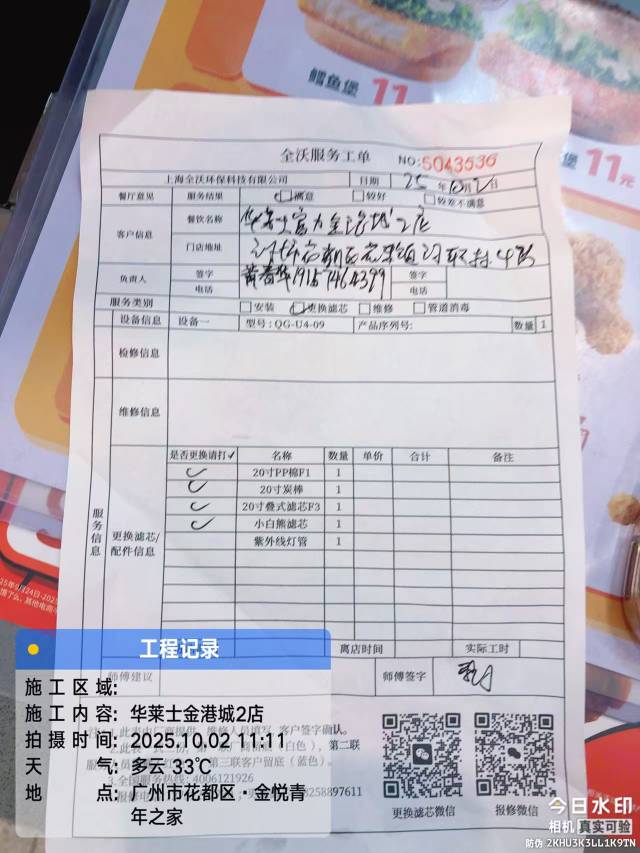 鳕鱼堡 11
堡 11元
全沃服务工单 NO:5043536
上海全沃环保科技有限公司 日期 25年10月2日
餐厅意见 服务结果 满意 较好 较差不满意
客户信息 餐饮名称
门店地址
负责人 签字 电话 签字 电话
服务类别 安装 更换滤芯 维修 管道消毒
设备信息 设备一 型号:QG-U4-09 产品序列号: 数量 1
检修信息
维修信息
服务信息
更换滤芯/配件信息
是否更换请打✓ 名称 数量 单价 合计 备注
✓ 20寸PP棉F1 1
✓ 20寸炭棒 1
✓ 20寸叠式滤芯F3 1
✓ 小白熊滤芯 1
紫外线灯管 1
离店时间 实际工时
师傅建议 师傅签字
客户签字确认。
(白色),第二联
第三联客户留底(蓝色)。
全国服务热线:4006121926
更换滤芯微信 报修微信
工程记录
施工区域:
施工内容: 华莱士金港城2店
拍摄时间: 2025.10.02 11:11
天气: 多云 33℃
地点: 广州市花都区·金悦青年之家
今日水印
相机 真实可验
防伪 2KHU3K3LL1K9TN